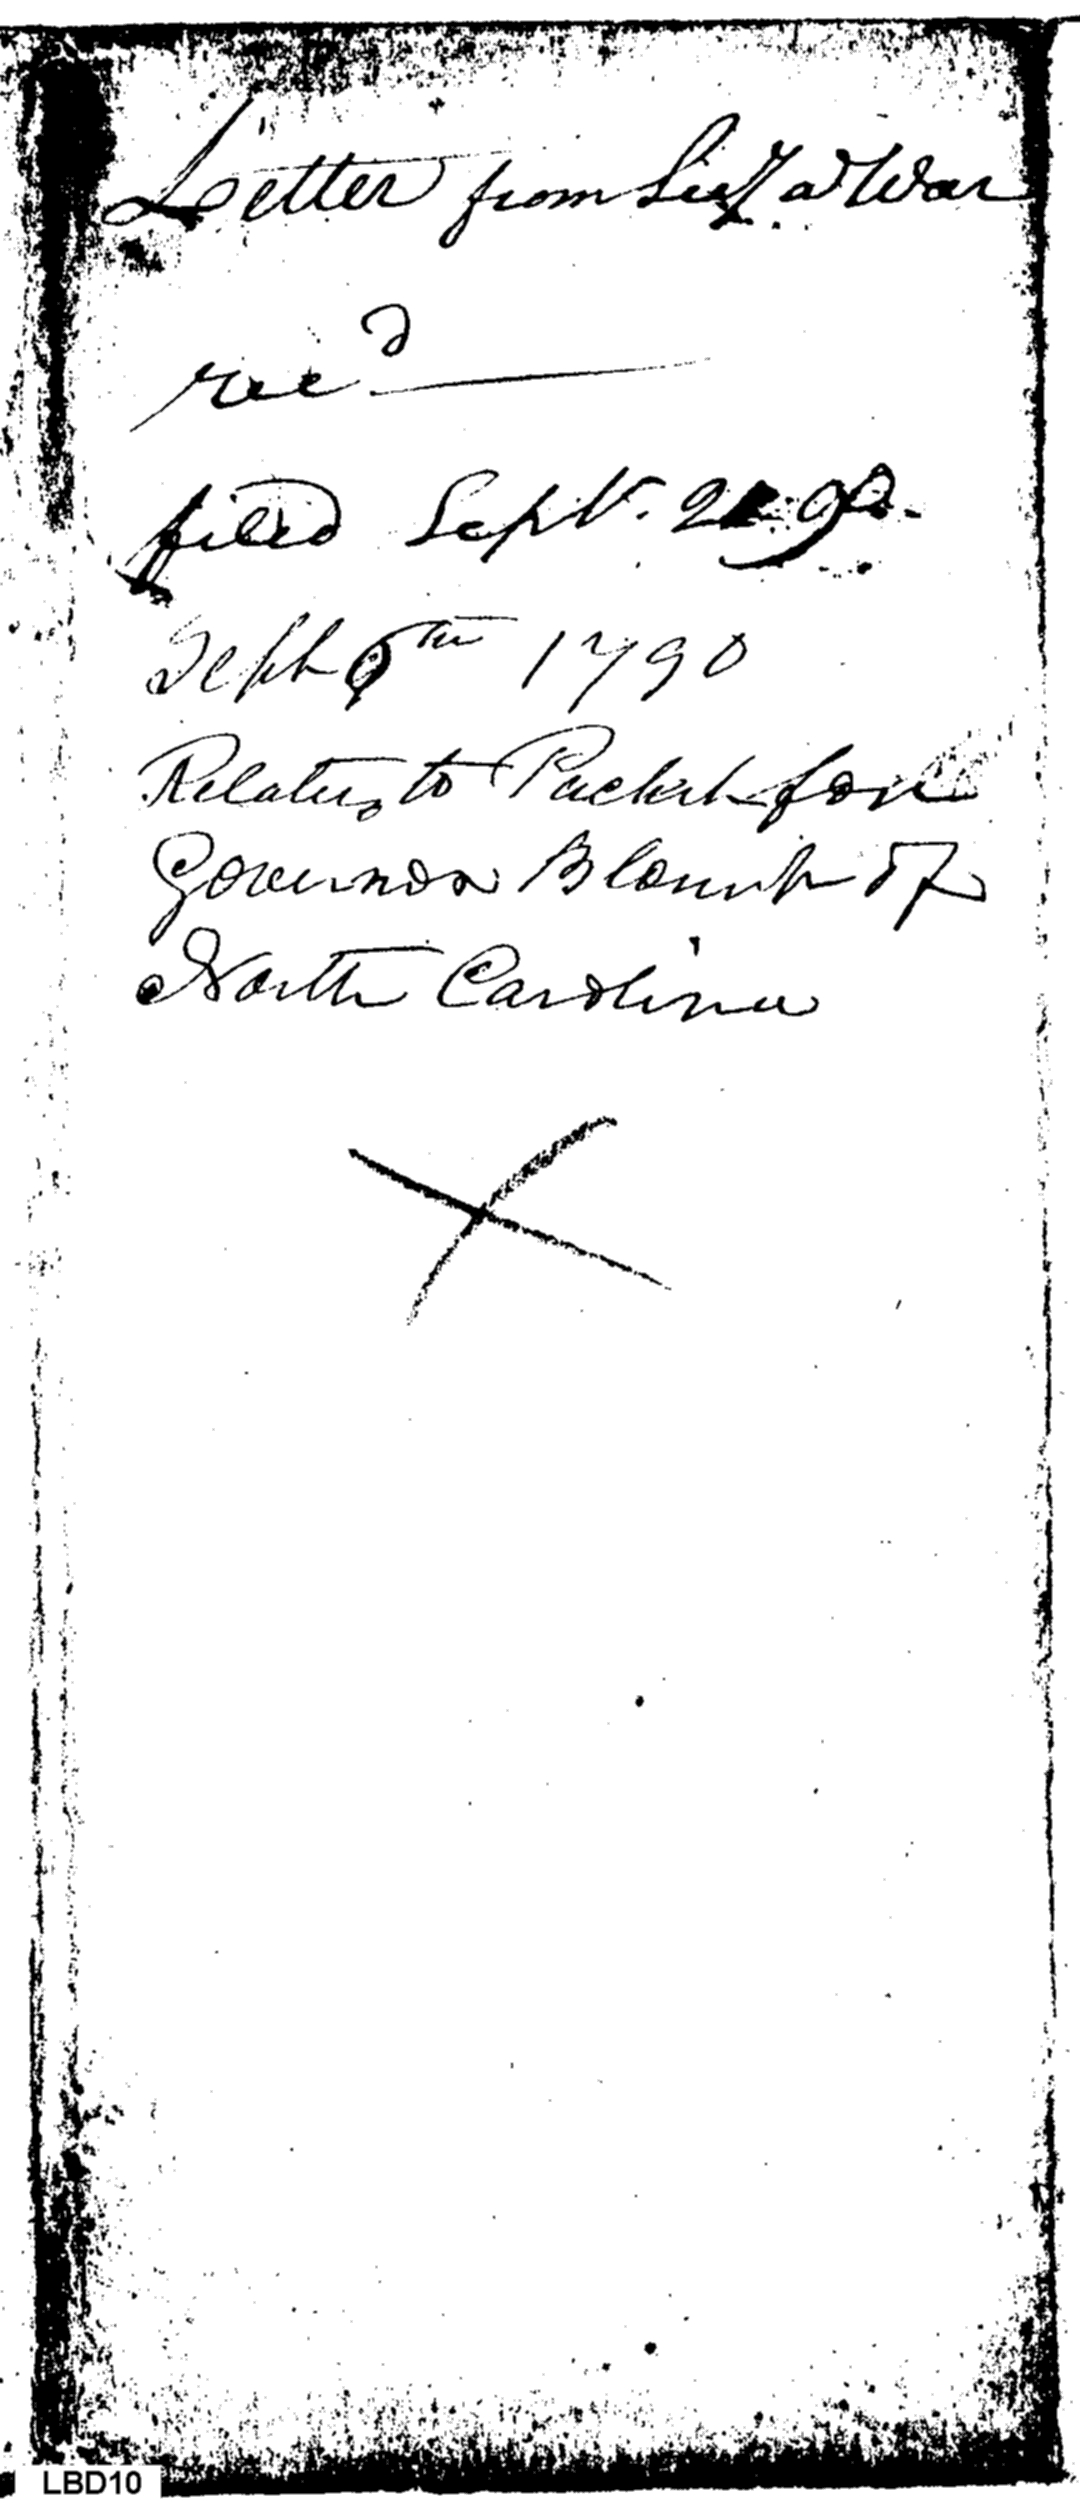 Letter from Secy at War
recd
filed Sept. 90.
Sept 1790
Relates to Packet for
Governor Blount of
North Carolina
X
LBD10